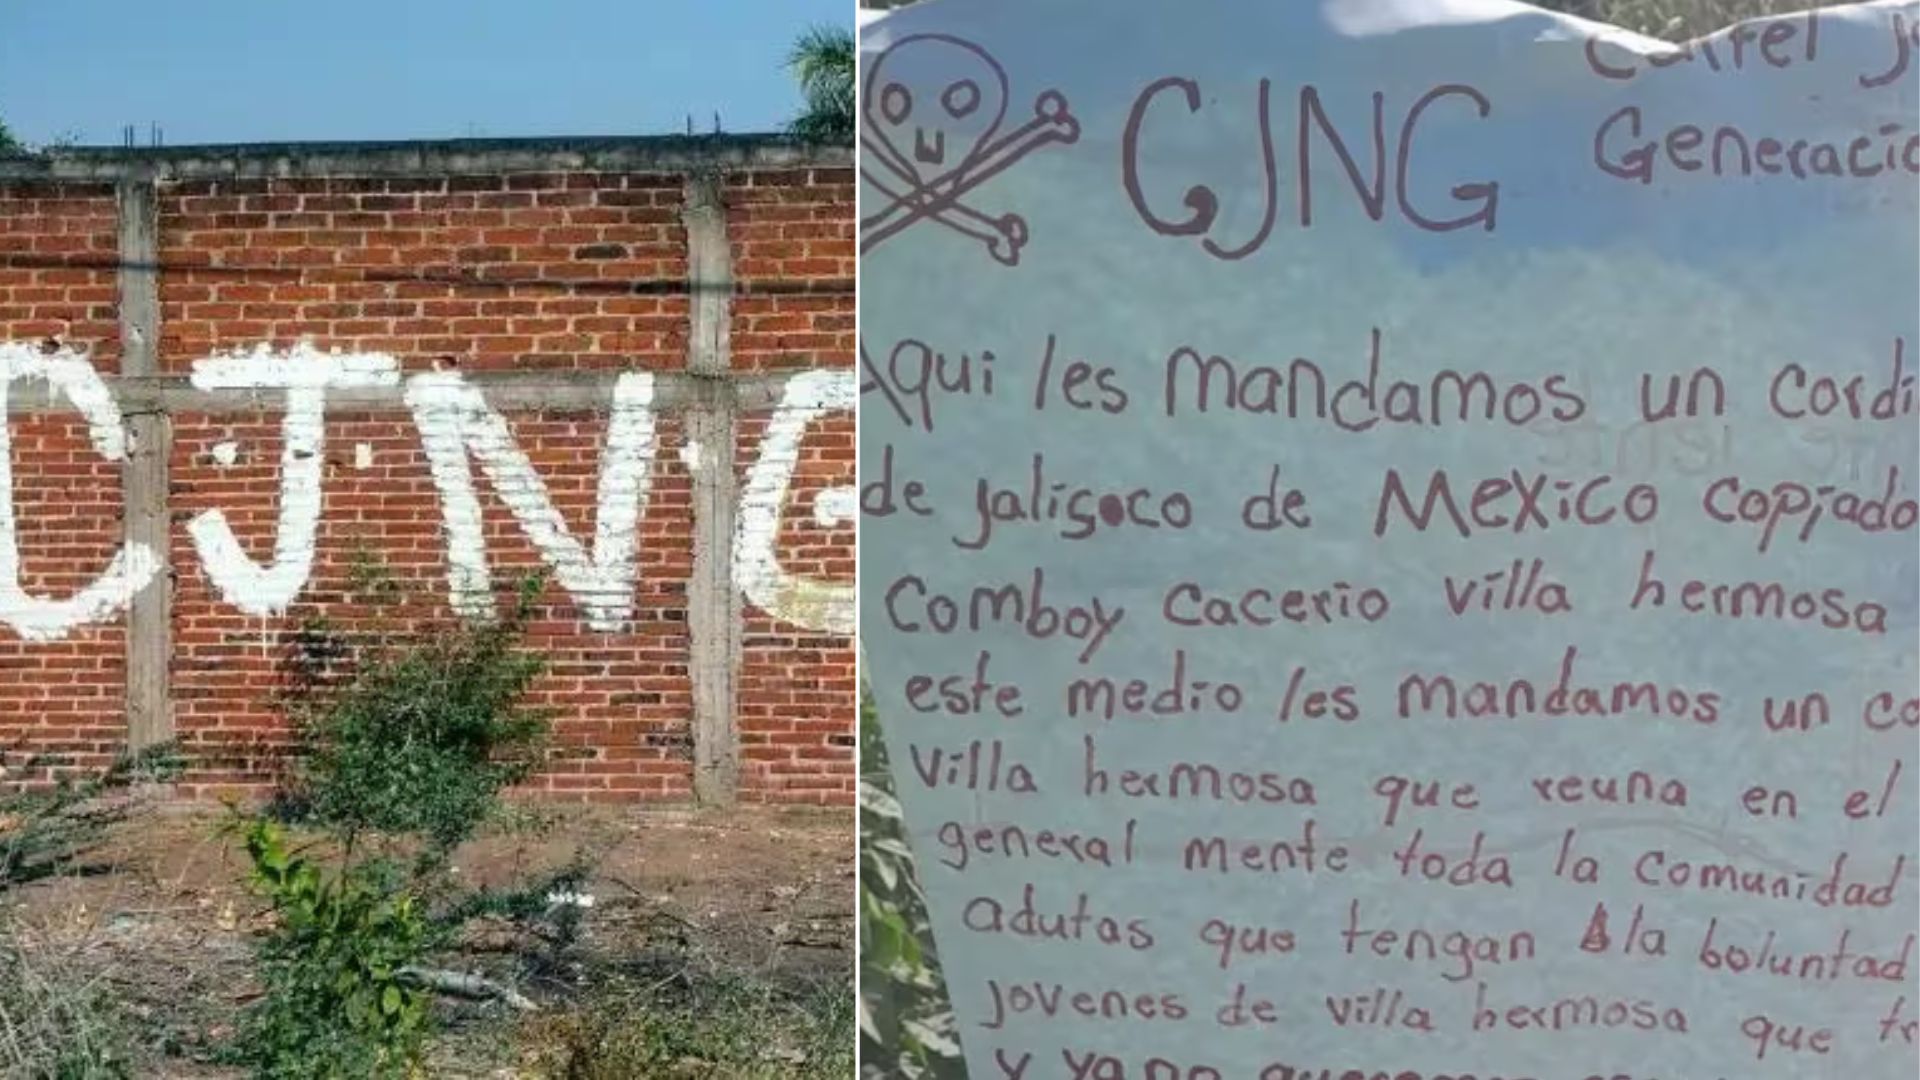 C.J.N.G
CJNG
Cartel J
Generació
Aqui les mandamos un cordi
de jalisoco de Mexico copjado
Comboy Cacerio villa hermosa
este medio les mandamos un co
Villa hermosa que reuna en el
general mente toda la comunidad
adutas que tengan la boluntad
jovenes de villa hermosa que tr
y ya no queremos